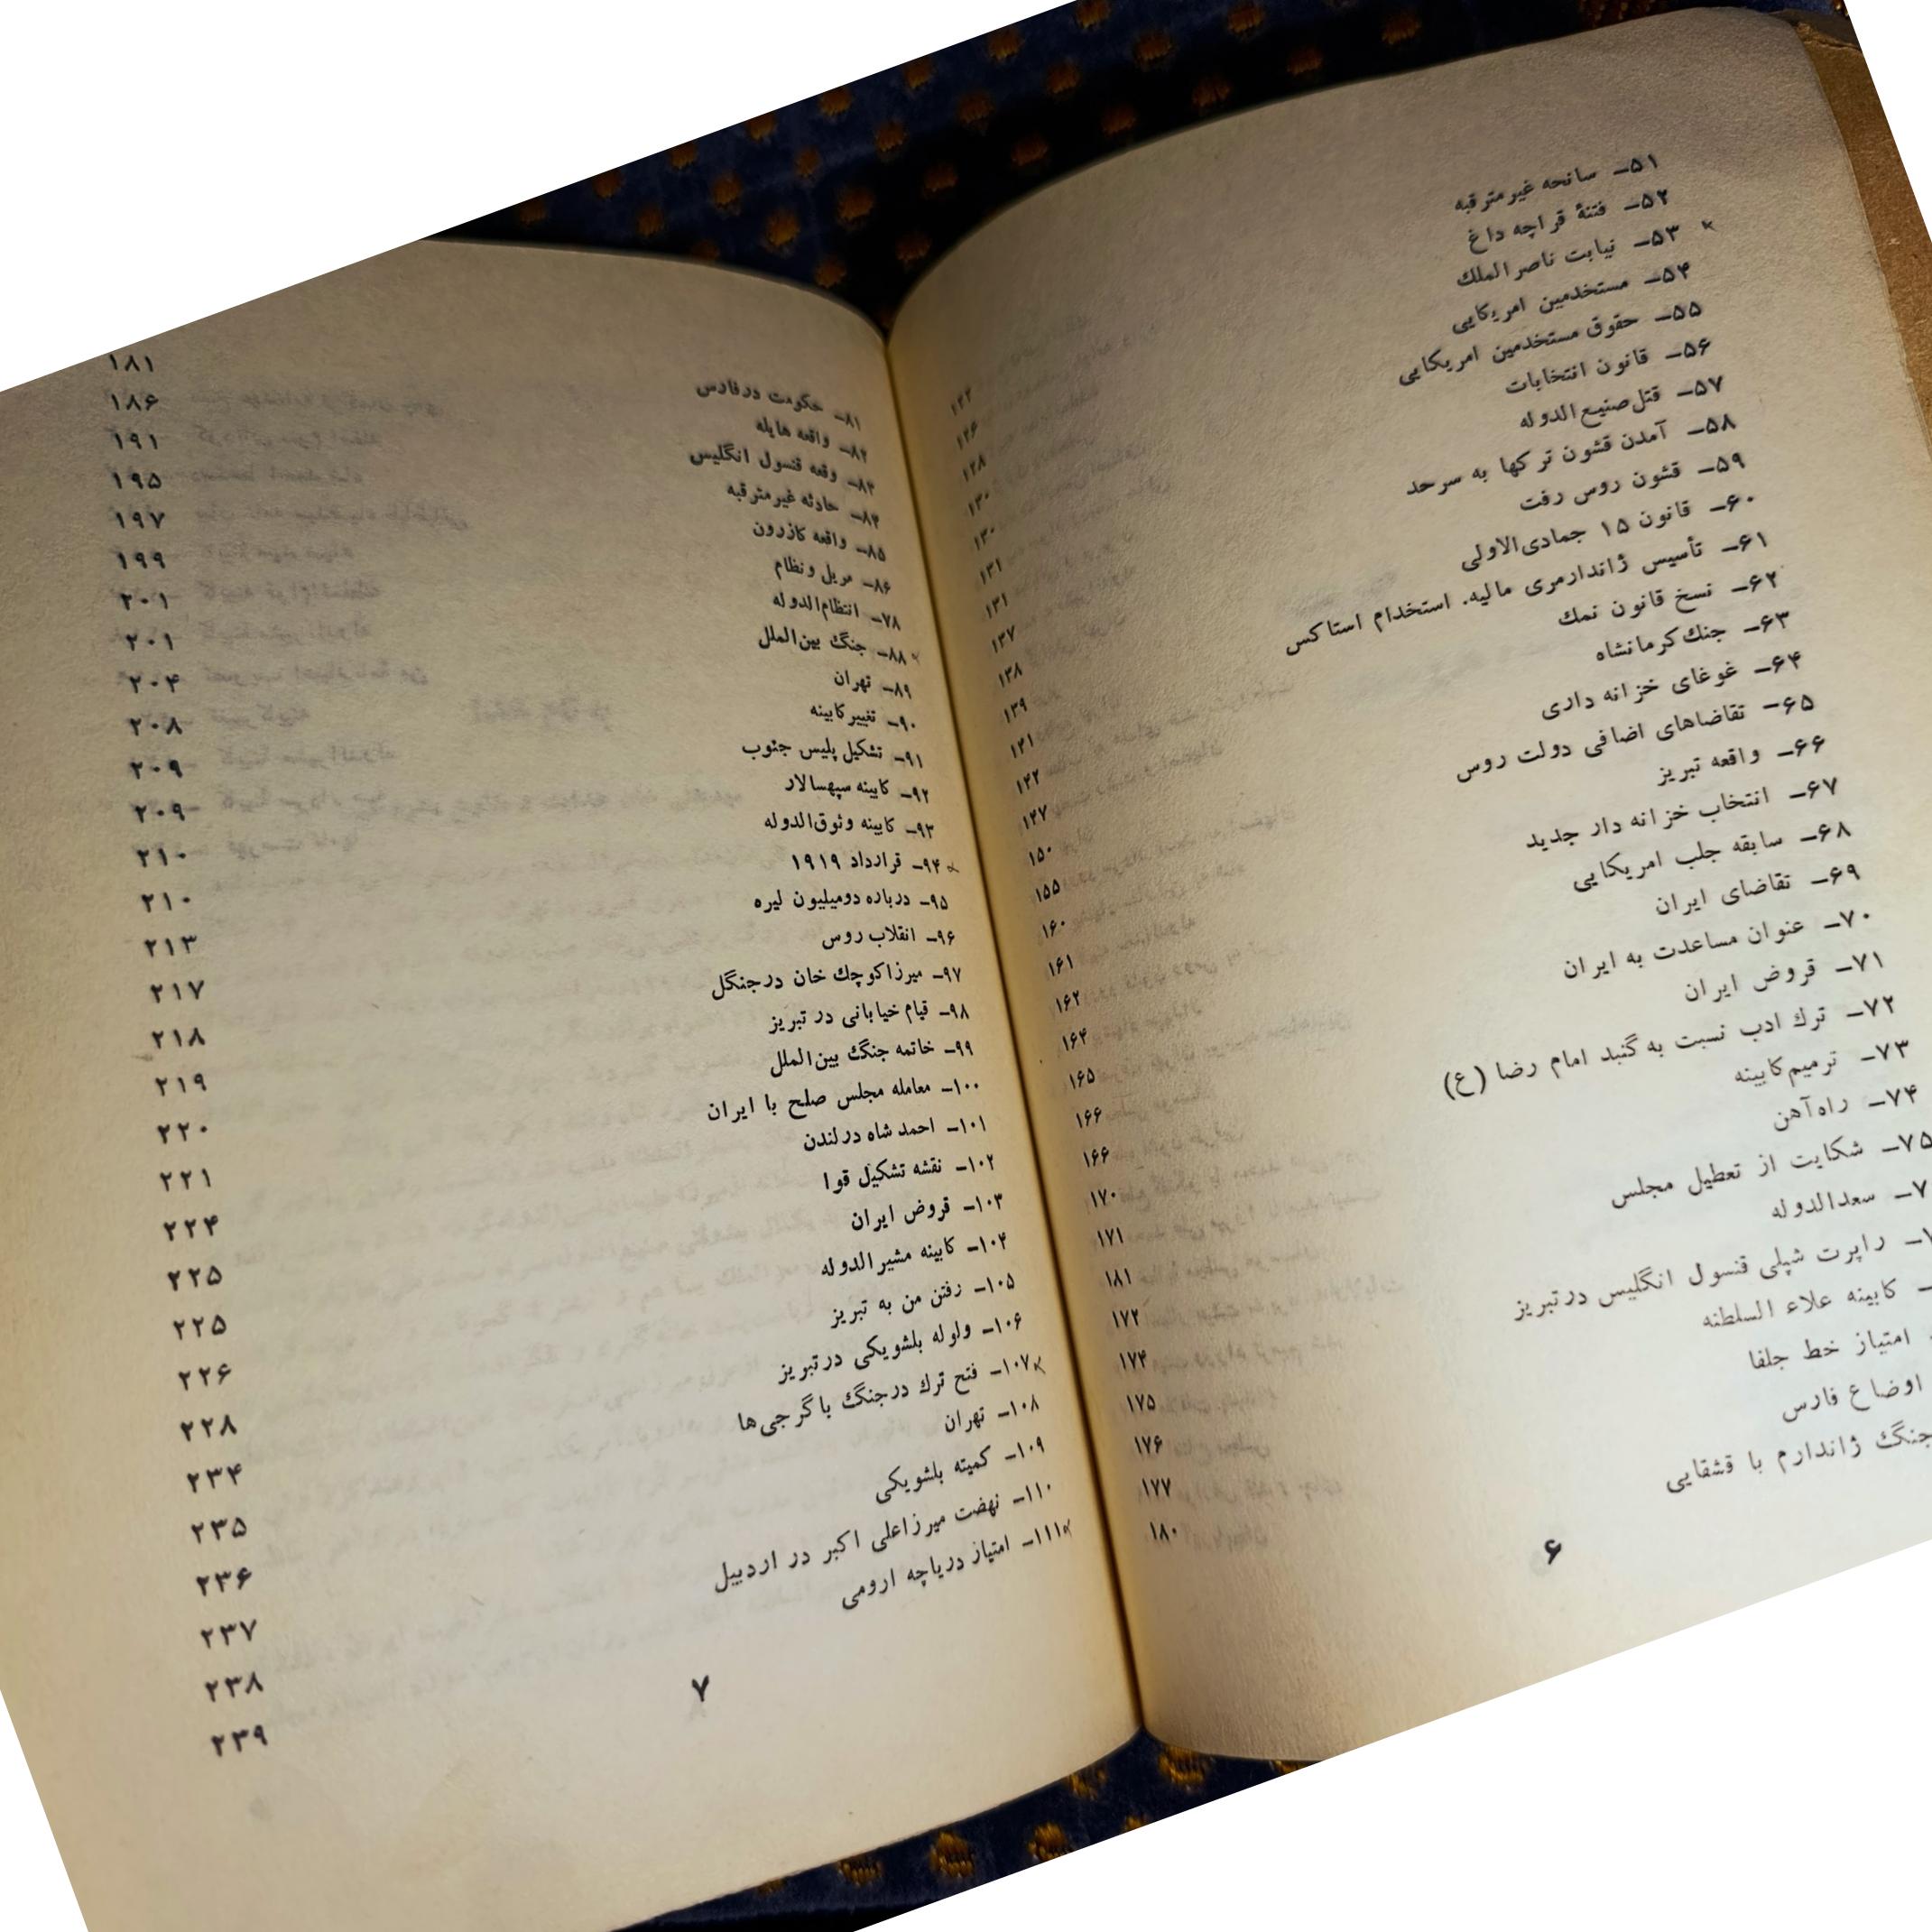 ۵۱– سانحه غیرمترقبه ۱۲۴
۵۲– فتنهٔ قراچه داغ ۱۲۶
۵۳– نیابت ناصرالملك ۱۲۸
۵۴– مستخدمین امریکایی ۱۳۰
۵۵– حقوق مستخدمین امریکایی ۱۳۰
۵۶– قانون انتخابات ۱۳۱
۵۷– قتل صنیع‌الدوله ۱۳۱
۵۸– آمدن قشون ترکها به سرحد ۱۳۷
۵۹– قشون روس رفت ۱۳۸
۶۰– قانون ۱۵ جمادی‌الاولی ۱۳۹
۶۱– تأسیس ژاندارمری مالیه. استخدام استاکس ۱۴۱
۶۲– نسخ قانون نمك ۱۴۲
۶۳– جنك کرمانشاه ۱۴۷
۶۴– غوغای خزانه داری ۱۵۰
۶۵– تقاضاهای اضافی دولت روس ۱۵۵
۶۶– واقعه تبریز ۱۶۰
۶۷– انتخاب خزانه دار جدید ۱۶۱
۶۸– سابقه جلب امریکایی ۱۶۲
۶۹– تقاضای ایران ۱۶۴
۷۰– عنوان مساعدت به ایران ۱۶۵
۷۱– قروض ایران ۱۶۶
۷۲– ترك ادب نسبت به گنبد امام رضا (ع) ۱۶۶
۷۳– ترمیم کابینه ۱۷۰
۷۴– راه‌آهن ۱۷۱
۷۵– شکایت از تعطیل مجلس ۱۸۱
۷– سعدالدوله ۱۷۲
– راپرت شپلی قنسول انگلیس در تبریز ۱۷۴
– کابینه علاء السلطنه ۱۷۵
امتیاز خط جلفا ۱۷۶
اوضاع فارس ۱۷۷
جنگ ژاندارم با قشقایی ۱۸۰
۶
۸۱– حکومت در فارس ۱۸۱
۸۲– واقعه هایله ۱۸۶
۸۳– وقعه قنسول انگلیس ۱۹۱
۸۴– حادثه غیرمترقبه ۱۹۵
۸۵– واقعه کازرون ۱۹۷
۸۶– مریل و نظام ۱۹۹
۷۸– انتظام‌الدوله ۲۰۱
۸۸– جنگ بین‌الملل ۲۰۱
۸۹– تهران ۲۰۴
۹۰– تغییر کابینه ۲۰۸
۹۱– تشکیل پلیس جنوب ۲۰۹
۹۲– کابینه سپهسالار ۲۰۹
۹۳– کابینه وثوق‌الدوله ۲۱۰
۹۴– قرارداد ۱۹۱۹ ۲۱۰
۹۵– درباره دومیلیون لیره ۲۱۳
۹۶– انقلاب روس ۲۱۷
۹۷– میرزاکوچك خان درجنگل ۲۱۸
۹۸– قیام خیابانی در تبریز ۲۱۹
۹۹– خاتمه جنگ بین‌الملل ۲۲۰
۱۰۰– معامله مجلس صلح با ایران ۲۲۱
۱۰۱– احمد شاه در لندن ۲۲۴
۱۰۲– نقشه تشکیل قوا ۲۲۵
۱۰۳– قروض ایران ۲۲۵
۱۰۴– کابینه مشیرالدوله ۲۲۶
۱۰۵– رفتن من به تبریز ۲۲۸
۱۰۶– ولوله بلشویکی درتبریز ۲۳۴
۱۰۷– فتح ترك درجنگ باگرجی‌ها ۲۳۵
۱۰۸– تهران ۲۳۶
۱۰۹– کمیته بلشویکی ۲۳۷
۱۱۰– نهضت میرزاعلی اکبر در اردبیل ۲۳۸
۱۱۱– امتیاز دریاچه ارومی ۲۳۹
۷